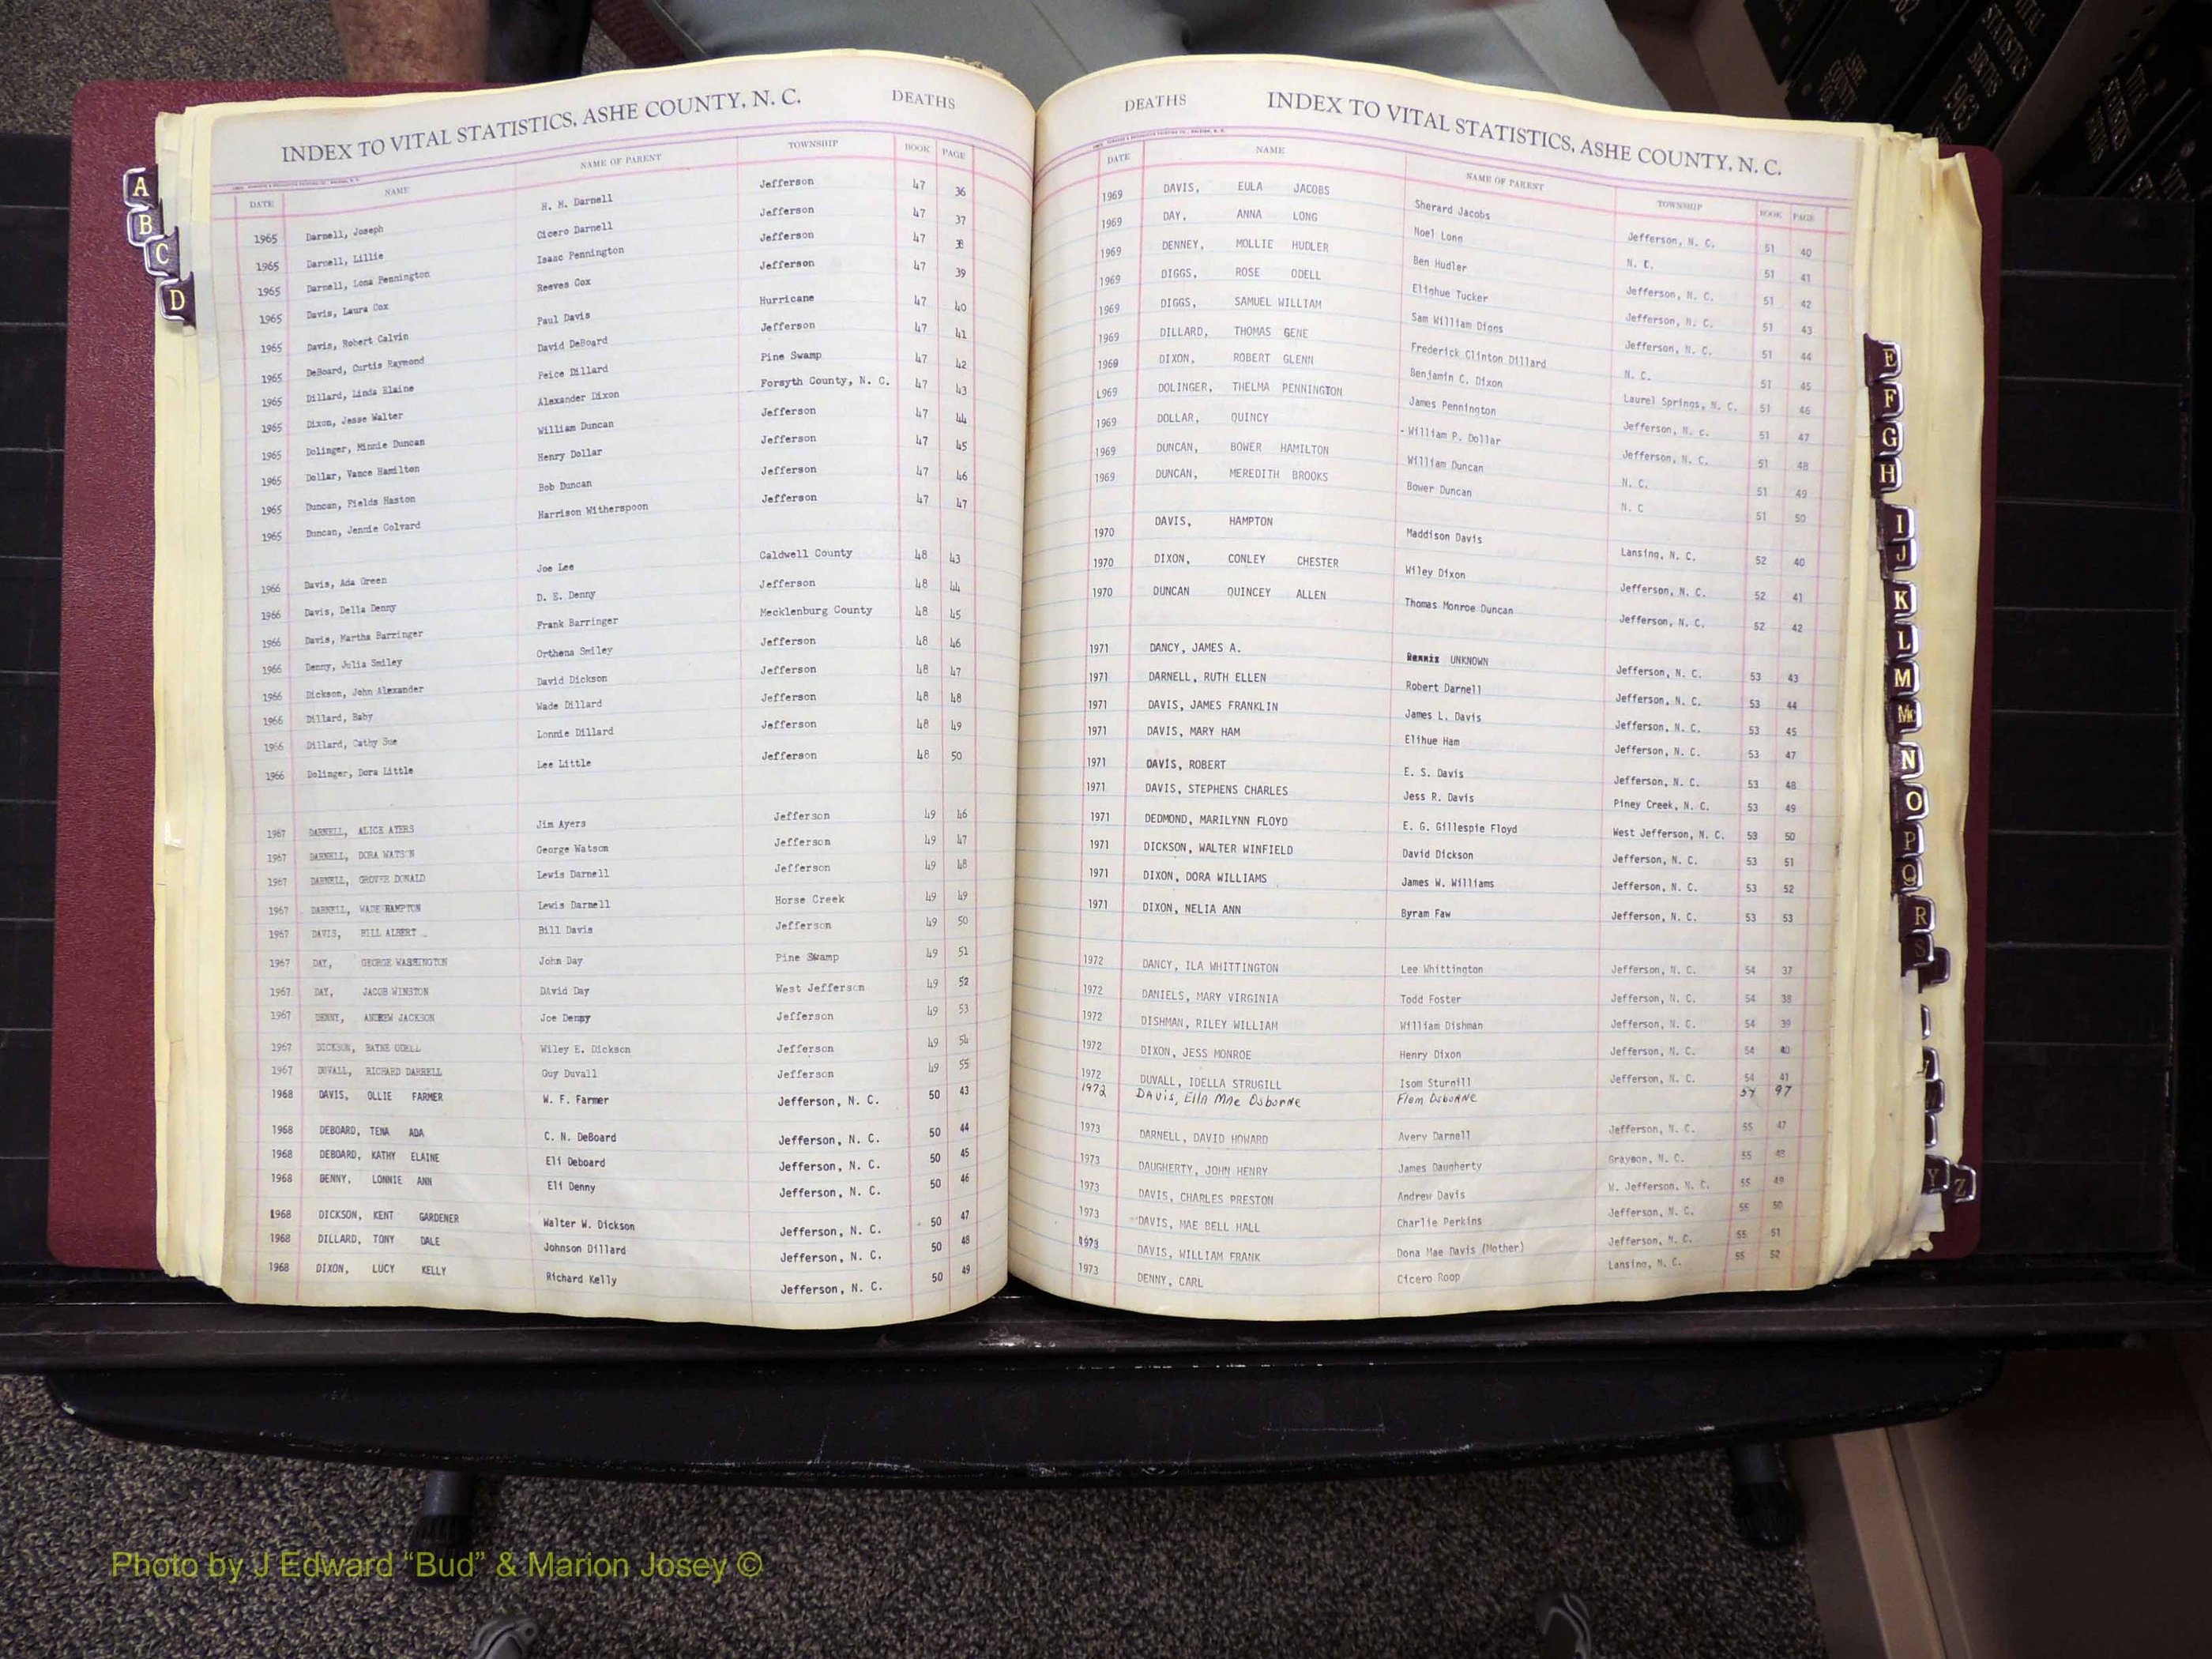 INDEX TO VITAL STATISTICS, ASHE COUNTY, N. C. DEATHS
DATE NAME NAME OF PARENT TOWNSHIP BOOK PAGE
1965 Darnell, Joseph H. M. Darnell Jefferson 47 36
1965 Darnell, Lillie Cicero Darnell Jefferson 47 37
1965 Darnell, Lona Pennington Isaac Pennington Jefferson 47 38
1965 Davis, Laura Cox Reeves Cox Jefferson 47 39
1965 Davis, Robert Calvin Paul Davis Hurricane 47 40
1965 DeBoard, Curtis Raymond David DeBoard Jefferson 47 41
1965 Dillard, Linda Elaine Peice Dillard Pine Swamp 47 42
1965 Dixon, Jesse Walter Alexander Dixon Forsyth County, N. C. 47 43
1965 Dolinger, Minnie Duncan William Duncan Jefferson 47 44
1965 Dollar, Vance Hamilton Henry Dollar Jefferson 47 45
1965 Duncan, Fields Haston Bob Duncan Jefferson 47 46
1965 Duncan, Jennie Colvard Harrison Witherspoon Jefferson 47 47
1966 Davis, Ada Green Joe Lee Caldwell County 48 43
1966 Davis, Della Denny D. E. Denny Jefferson 48 44
1966 Davis, Martha Barringer Frank Barringer Mecklenburg County 48 45
1966 Denny, Julia Smiley Orthena Smiley Jefferson 48 46
1966 Dickson, John Alexander David Dickson Jefferson 48 47
1966 Dillard, Baby Wade Dillard Jefferson 48 48
1966 Dillard, Cathy Sue Lonnie Dillard Jefferson 48 49
1966 Dolinger, Dora Little Lee Little Jefferson 48 50
1967 DARNELL, ALICE AYERS Jim Ayers Jefferson 49 46
1967 DARNELL, DORA WATSON George Watson Jefferson 49 47
1967 DARNELL, GROVER DONALD Lewis Darnell Jefferson 49 48
1967 DARNELL, WADE HAMPTON Lewis Darnell Horse Creek 49 49
1967 DAVIS, BILL ALBERT Bill Davis Jefferson 49 50
1967 DAY, GEORGE WASHINGTON John Day Pine Swamp 49 51
1967 DAY, JACOB WINSTON David Day West Jefferson 49 52
1967 DENNY, ANDREW JACKSON Joe Denny Jefferson 49 53
1967 DICKSON, BAYNE ODELL Wiley E. Dickson Jefferson 49 54
1967 DUVALL, RICHARD DARRELL Guy Duvall Jefferson 49 55
1968 DAVIS, OLLIE FARMER W. F. Farmer Jefferson, N. C. 50 43
1968 DEBOARD, TENA ADA C. N. DeBoard Jefferson, N. C. 50 44
1968 DEBOARD, KATHY ELAINE Eli Deboard Jefferson, N. C. 50 45
1968 DENNY, LONNIE ANN Eli Denny Jefferson, N. C. 50 46
1968 DICKSON, KENT GARDENER Walter W. Dickson Jefferson, N. C. 50 47
1968 DILLARD, TONY DALE Johnson Dillard Jefferson, N. C. 50 48
1968 DIXON, LUCY KELLY Richard Kelly Jefferson, N. C. 50 49
DEATHS INDEX TO VITAL STATISTICS, ASHE COUNTY, N. C.
DATE NAME NAME OF PARENT TOWNSHIP BOOK PAGE
1969 DAVIS, EULA JACOBS Sherard Jacobs Jefferson, N. C. 51 40
1969 DAY, ANNA LONG Noel Long N. C. 51 41
1969 DENNEY, MOLLIE HUDLER Ben Hudler Jefferson, N. C. 51 42
1969 DIGGS, ROSE ODELL Elighue Tucker Jefferson, N. C. 51 43
1969 DIGGS, SAMUEL WILLIAM Sam William Diggs Jefferson, N. C. 51 44
1969 DILLARD, THOMAS GENE Frederick Clinton Dillard N. C. 51 45
1969 DIXON, ROBERT GLENN Benjamin C. Dixon Laurel Springs, N. C. 51 46
L969 DOLINGER, THELMA PENNINGTON James Pennington Jefferson, N. C. 51 47
1969 DOLLAR, QUINCY William P. Dollar Jefferson, N. C. 51 48
1969 DUNCAN, BOWER HAMILTON William Duncan N. C. 51 49
1969 DUNCAN, MEREDITH BROOKS Bower Duncan N. C 51 50
1970 DAVIS, HAMPTON Maddison Davis Lansing, N. C. 52 40
1970 DIXON, CONLEY CHESTER Wiley Dixon Jefferson, N. C. 52 41
1970 DUNCAN QUINCEY ALLEN Thomas Monroe Duncan Jefferson, N. C. 52 42
1971 DANCY, JAMES A. UNKNOWN Jefferson, N. C. 53 43
1971 DARNELL, RUTH ELLEN Robert Darnell Jefferson, N. C. 53 44
1971 DAVIS, JAMES FRANKLIN James L. Davis Jefferson, N. C. 53 45
1971 DAVIS, MARY HAM Elihue Ham Jefferson, N. C. 53 47
1971 DAVIS, ROBERT E. S. Davis Jefferson, N. C. 53 48
1971 DAVIS, STEPHENS CHARLES Jess R. Davis Piney Creek, N. C. 53 49
1971 DEDMOND, MARILYNN FLOYD E. G. Gillespie Floyd West Jefferson, N. C. 53 50
1971 DICKSON, WALTER WINFIELD David Dickson Jefferson, N. C. 53 51
1971 DIXON, DORA WILLIAMS James W. Williams Jefferson, N. C. 53 52
1971 DIXON, NELIA ANN Byram Faw Jefferson, N. C. 53 53
1972 DANCY, ILA WHITTINGTON Lee Whittington Jefferson, N. C. 54 37
1972 DANIELS, MARY VIRGINIA Todd Foster Jefferson, N. C. 54 38
1972 DISHMAN, RILEY WILLIAM William Dishman Jefferson, N. C. 54 39
1972 DIXON, JESS MONROE Henry Dixon Jefferson, N. C. 54 40
1972 DUVALL, IDELLA STRUGILL Isom Sturgill Jefferson, N. C. 54 41
1972 Davis, Ella Mae Osborne Flem Osborne 54 97
1973 DARNELL, DAVID HOWARD Avery Darnell Jefferson, N. C. 55 47
1973 DAUGHERTY, JOHN HENRY James Daugherty Grayson, N. C. 55 48
1973 DAVIS, CHARLES PRESTON Andrew Davis W. Jefferson, N. C. 55 49
1973 DAVIS, MAE BELL HALL Charlie Perkins Jefferson, N. C. 55 50
1973 DAVIS, WILLIAM FRANK Dona Mae Davis (Mother) Jefferson, N. C. 55 51
1973 DENNY, CARL Cicero Roop Lansing, N. C. 55 52
A
B
C
D
E
F
G
H
I
J
K
L
M
Mc
N
O
P
Q
R
S
Y
Z
VITAL STATISTICS BIRTHS 1963
Photo by J Edward “Bud” & Marion Josey ©